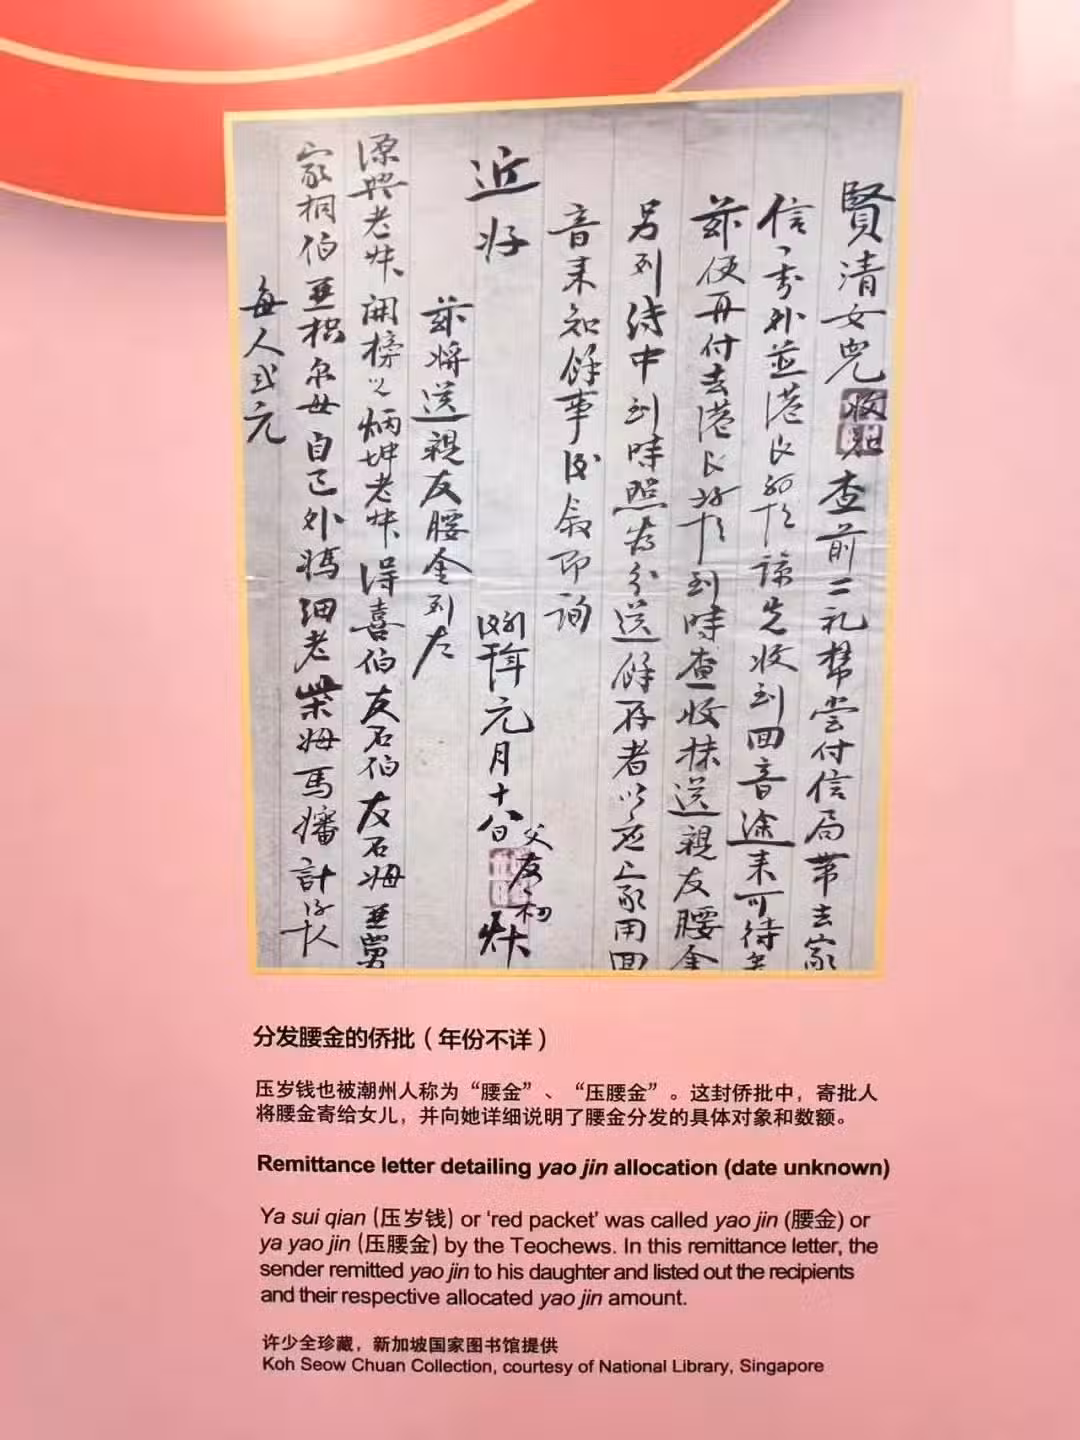 賢清女兒收知查前二礼幫嘗付信局带去家
信一封外並港艮 諒先收到回音途来可待至
茲便再付去港艮 到時查收抹送親友腰金
另列待中到時照為分送餘存者以应上家用回
音来知餘事後叙即詢
近好
元月十八日 父友初
茲将送親友腰金列左
源興老妹 開榜 炳坤老妹 得喜伯 友石伯 友石姆 亜舅
家桐伯 亜 母 自己 外媽 細老 姆 馬嬸 計 人
每人弍元
分发腰金的侨批（年份不详）
压岁钱也被潮州人称为“腰金”、“压腰金”。这封侨批中，寄批人
将腰金寄给女儿，并向她详细说明了腰金分发的具体对象和数额。
Remittance letter detailing yao jin allocation (date unknown)
Ya sui qian (压岁钱) or ‘red packet’ was called yao jin (腰金) or
ya yao jin (压腰金) by the Teochews. In this remittance letter, the
sender remitted yao jin to his daughter and listed out the recipients
and their respective allocated yao jin amount.
许少全珍藏，新加坡国家图书馆提供
Koh Seow Chuan Collection, courtesy of National Library, Singapore